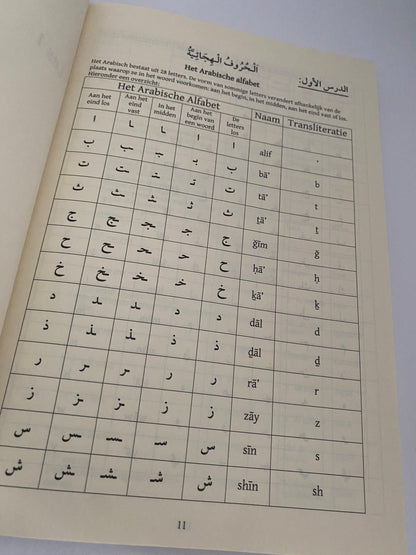 الدرس الأول:
اَلْحُرُوفُ الْهِجَائِيَّةُ
Het Arabische alfabet
Het Arabisch bestaat uit 28 letters. De vorm van sommige letters verandert afhankelijk van de
plaats waarop ze in het woord voorkomen: aan het begin, in het midden, aan het eind vast of los.
Hieronder een overzicht:
Het Arabische Alfabet Naam Transliteratie
Aan het eind los Aan het eind vast In het midden Aan het begin van een woord De letters los
ا ـا ـا ا ا alif
ب ـب ـبـ بـ ب bā’ b
ت ـت ـتـ تـ ت tā’ t
ث ـث ـثـ ثـ ث ṯā’ ṯ
ج ـج ـجـ جـ ج ǧīm ǧ
ح ـح ـحـ حـ ح ḥā’ ḥ
خ ـخ ـخـ خـ خ ḵā’ ḵ
د ـد ـد د د dāl d
ذ ـذ ـذ ذ ذ ḏāl ḏ
ر ـر ـر ر ر rā’ r
ز ـز ـز ز ز zāy z
س ـس ـسـ سـ س sīn s
ش ـش ـشـ شـ ش shīn sh
11